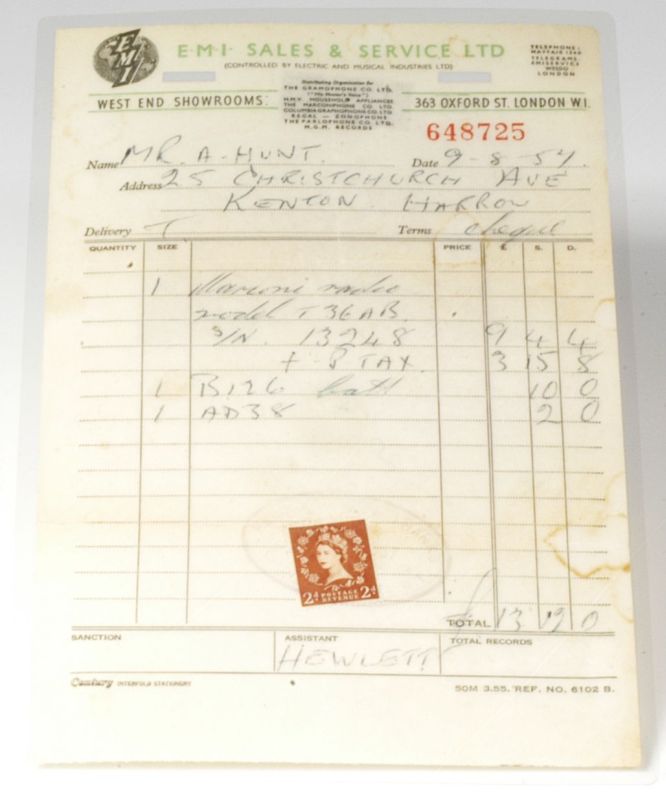 EMI
E·M·I· SALES & SERVICE LTD
(CONTROLLED BY ELECTRIC AND MUSICAL INDUSTRIES LTD)
TELEPHONE:
MAYFAIR 1240
TELEGRAMS
EMISERVICE
WESDO
LONDON
Distributing Organisation for
THE GRAMOPHONE CO. LTD.
("His Master's Voice")
H.M.V. HOUSEHOLD APPLIANCES
THE MARCONIPHONE CO. LTD.
COLUMBIA GRAPHOPHONE CO. LTD.
REGAL — ZONOPHONE
THE PARLOPHONE CO. LTD.
M.G.M. RECORDS
WEST END SHOWROOMS:
363 OXFORD ST. LONDON W1.
648725
Name MR. A. HUNT. Date 9-8-57.
Address 25 CHRISTCHURCH AVE
KENTON HARROW
Delivery T Terms cheque
QUANTITY SIZE PRICE £ S. D.
1 Marconi radio
model T36AB.
S/N. 13248 9 4 4
+ P TAX. 3 15 8
1 B126 batt 10 0
1 AD38 2 0
2D POSTAGE REVENUE 2D
TOTAL £ 13 12 0
SANCTION ASSISTANT TOTAL RECORDS
HEWLETT
Century INTERFOLD STATEMENT
50M 3.55. REF. NO. 6102 B.